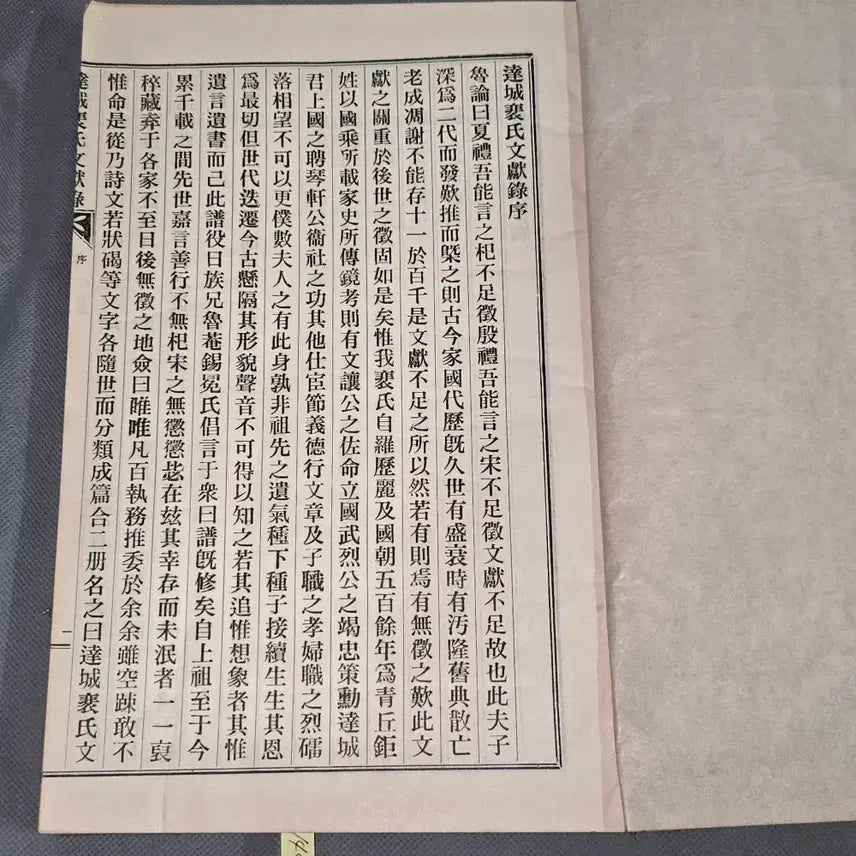 達城裵氏文獻錄序
魯論曰夏禮吾能言之杞不足徵殷禮吾能言之宋不足徵文獻不足故也此夫子
深爲二代而發歎推而槩之則古今家國代歷旣久世有盛衰時有汚隆舊典散亡
老成凋謝不能存十一於百千是文獻不足之所以然若有則焉有無徵之歎此文
獻之關重於後世之徵固如是矣惟我裵氏自羅歷麗及國朝五百餘年爲靑丘鉅
姓以國乘所載家史所傳鏡考則有文讓公之佐命立國武烈公之竭忠策勳達城
君上國之聘琴軒公衞社之功其他仕宦節義德行文章及子職之孝婦職之烈礌
落相望不可以更僕數夫人之有此身孰非祖先之遺氣種下種子接續生生其恩
爲最切但世代迭遷今古懸隔其形貌聲音不可得以知之若其追惟想象者其惟
遺言遺書而已此譜役日族兄魯菴錫冕氏倡言于衆曰譜旣修矣自上祖至于今
累千載之間先世嘉言善行不無杞宋之無徵懲毖在玆其幸存而未泯者一一裒
稡藏弆于各家不至日後無徵之地僉曰唯唯凡百執務推委於余余雖空疎敢不
惟命是從乃詩文若狀碣等文字各隨世而分類成篇合二册名之曰達城裵氏文
達城裵氏文獻錄
序
一